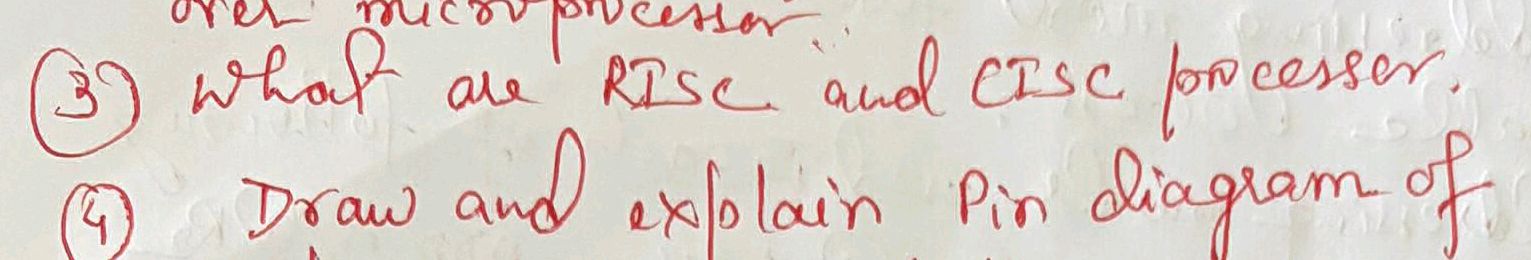 over microprocessor.
③ What are RISC and CISC processer.
④ Draw and explain Pin diagram of